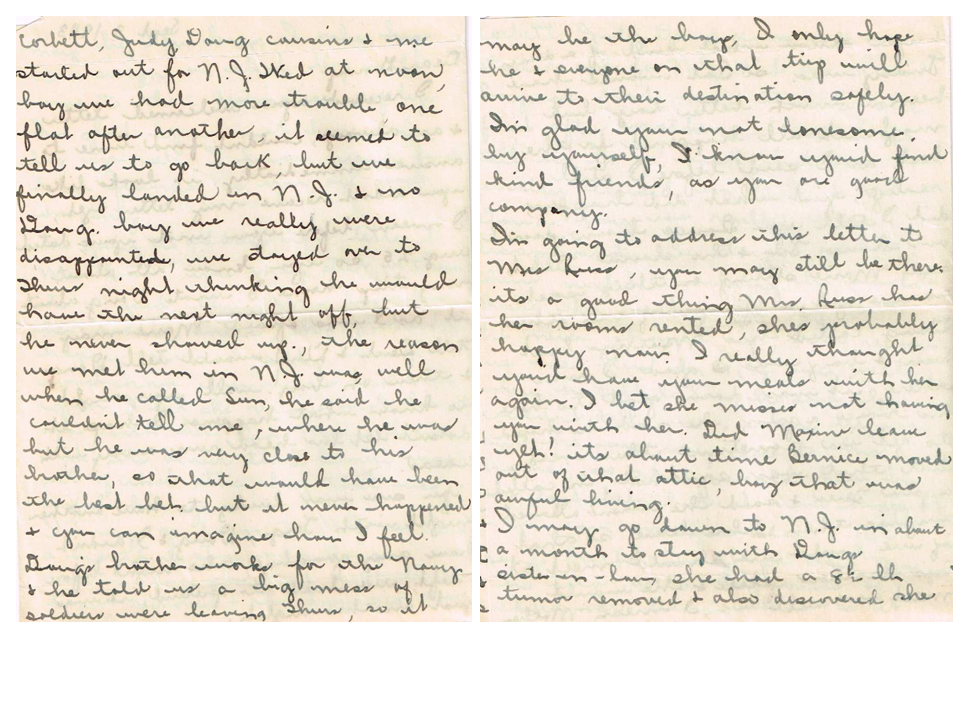 Corbett, Judy Doug cousins & me
started out for N.J. Wed at noon,
boy we had more trouble one
flat after another, it seemed to
tell us to go back, but we
finally landed in N.J. & no
Doug. boy we really were
disappointed, we stayed over to
Thurs night thinking he would
have the next night off, but
he never showed up., the reason
we met him in N.J. was, well
when he called Sun, he said he
couldn't tell me, where he was
but he was very close to his
brother, so that would have been
the best bet, but it never happened
& you can imagine how I feel.
Dougs brother works for the Navy
& he told us a big mess of
soldiers were leaving Thurs, so it
may be the boys, I only hope
he & everyone on that trip will
arrive to their destination safely.
I'm glad your not lonesome
by yourself, I know you'd find
kind friends, as you are good
company.
I'm going to address this letter to
Mrs Russ, you may still be there.
its a good thing Mrs. Russ has
her rooms rented, she's probably
happy now. I really thought
you'd have your meals with her
again. I bet she misses not having
you with her. Did Maxine leave
yet! its about time Bernice moved
out of that attic, boy that was
awful living.
I may go down to N.J. in about
a month to stay with Dougs
sister-in-law, she had a 8½ lb
tumor removed & also discovered she